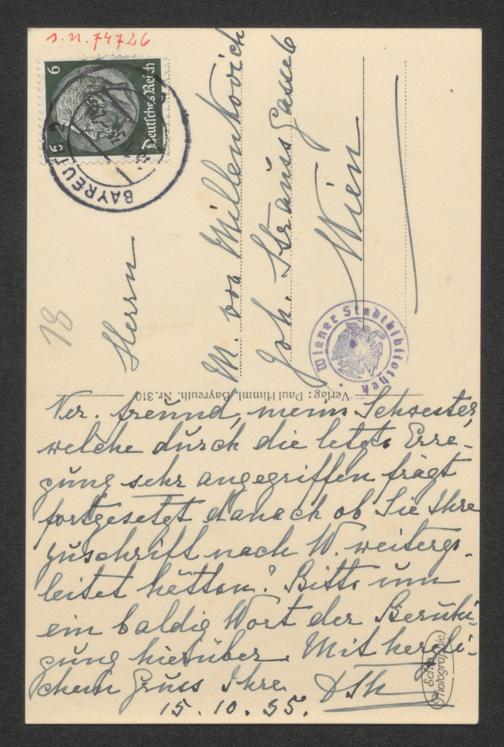 s.n. 74726
6
6
Deutsches Reich
BAYREUTH 2
Herrn
M. von Millenkovich
Joh. Straussgasse 6
Wien
18
Wiener Stadtbibliothek
Verlag: Paul Himml, Bayreuth. Nr. 310
Ver. Freund, meine Schwester,
welche durch die letzte Erre-
gung sehr angegriffen frägt
fortgesetzt danach ob Sie Ihre
Zuschrift nach W. weiterge-
leitet hätten? Bitte um
ein baldig Wort der Beruhi-
gung hierüber. Mit herzli-
chem Gruss Ihre
15.10.35.
Echte
Photographie